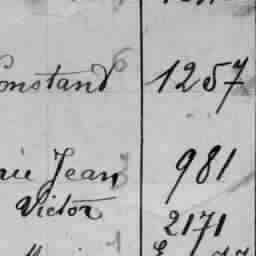 onstand 1257
rie Jean 981
Victor 2171